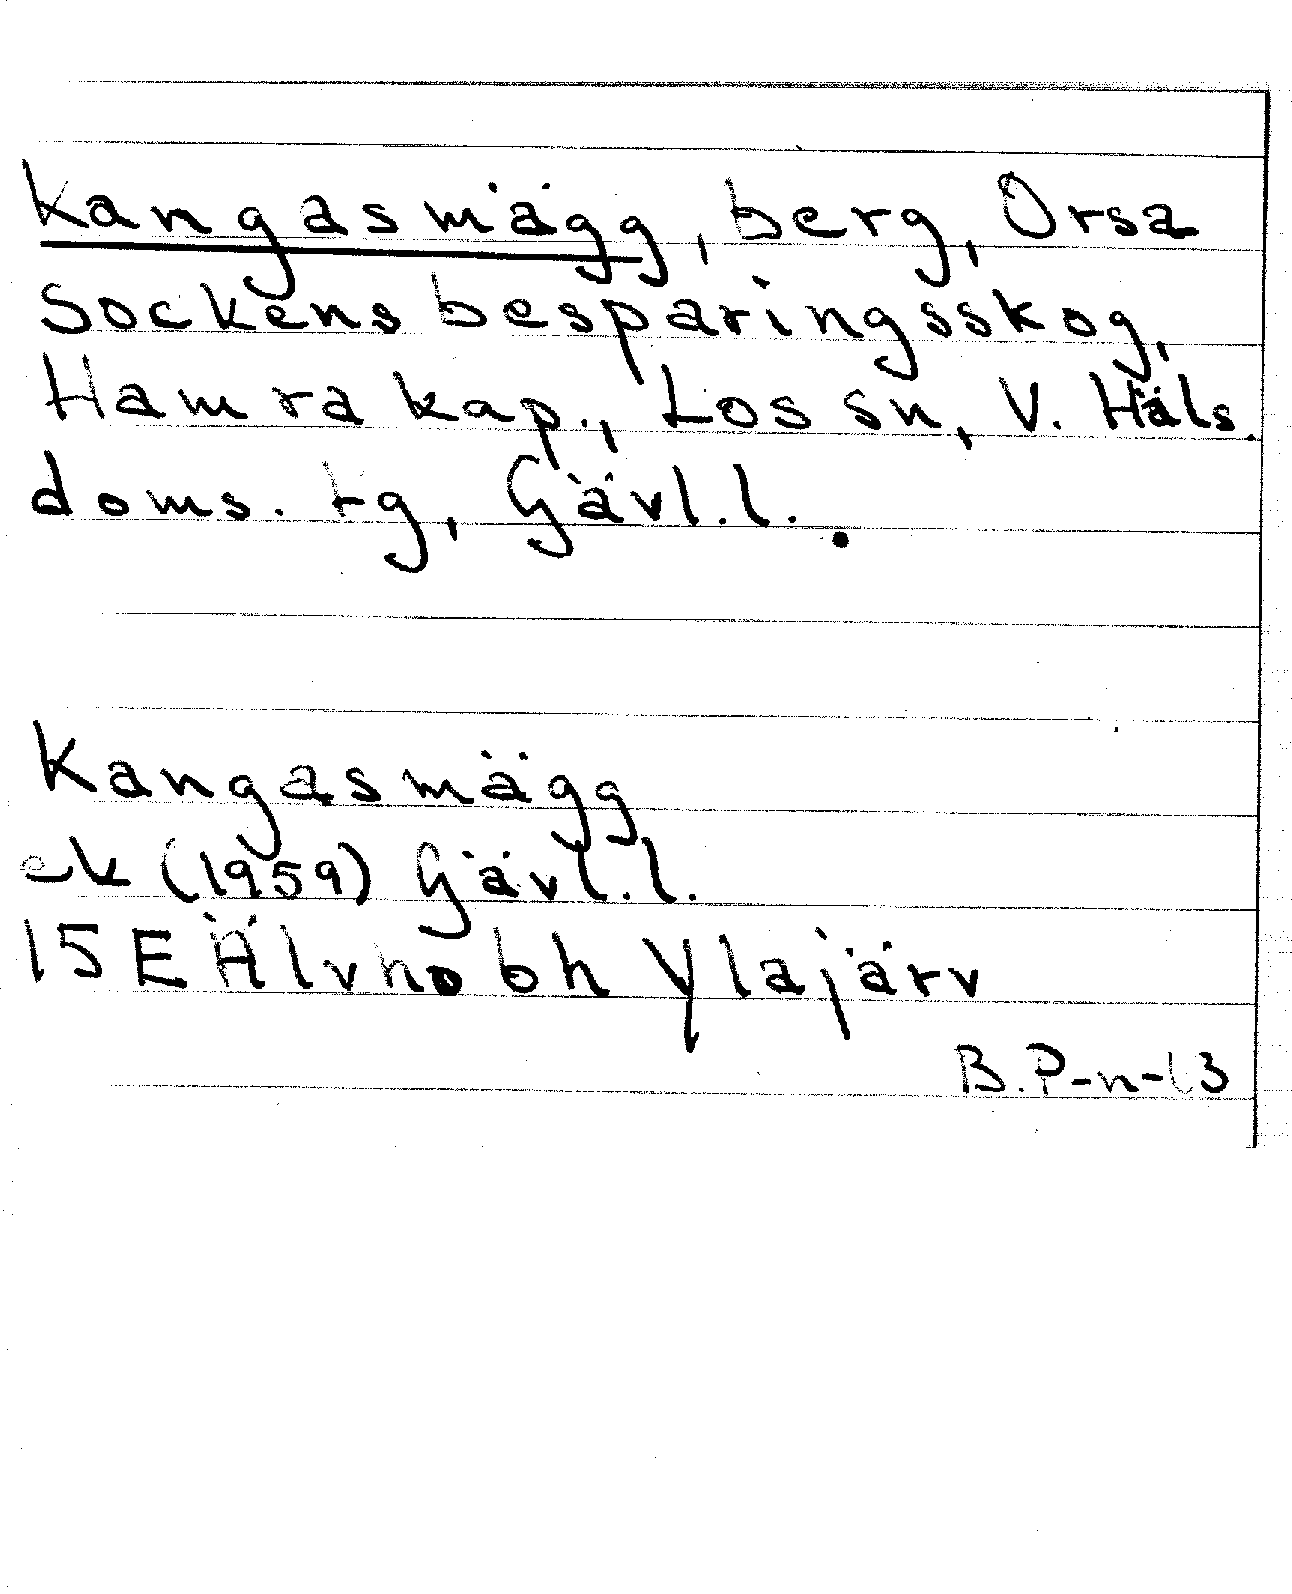 Kangasmägg, berg, Orsa
Sockens besparingsskog,
Hamra kap., Los sn, V. Häls.
doms. tg, Gävl.l.
Kangasmägg
ek (1959) Gävl.l.
15 E Älvho bh Ylajärv
B.P-n-63